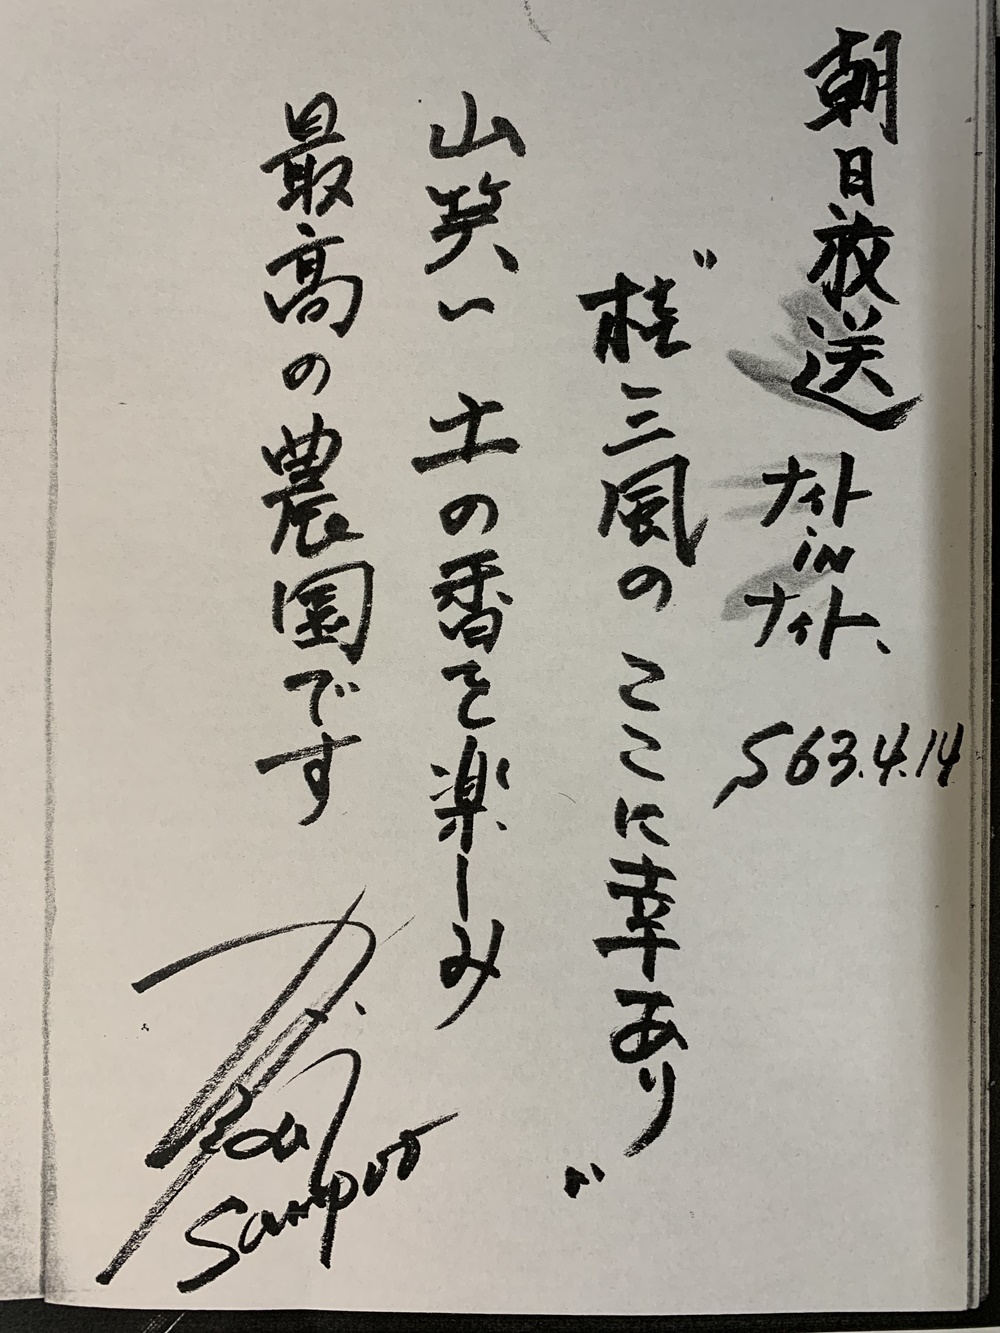 朝日放送 ナイト in ナイト、
S63.4.14
"桂三風のここに幸あり"
山笑い 土の香を楽しみ
最高の農園です
Sampoo